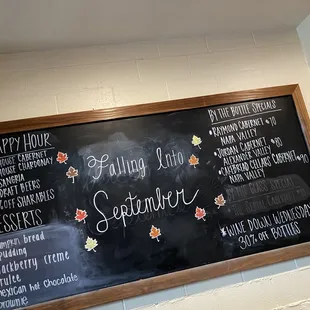 Happy Hour
House Cabernet
House Chardonnay
Sangria
Draft Beers
Off Sharables
Desserts
Pumpkin bread
Pudding
Blackberry creme
Brulee
Mexican hot chocolate
Brownie
Falling Into
September
By the Bottle Specials
Raymond Cabernet $70
Napa Valley
Cabernet
Alexander Valley
Cakebread Cellars Cabernet
Napa Valley
Wine Down Wednesday
30% off Bottles